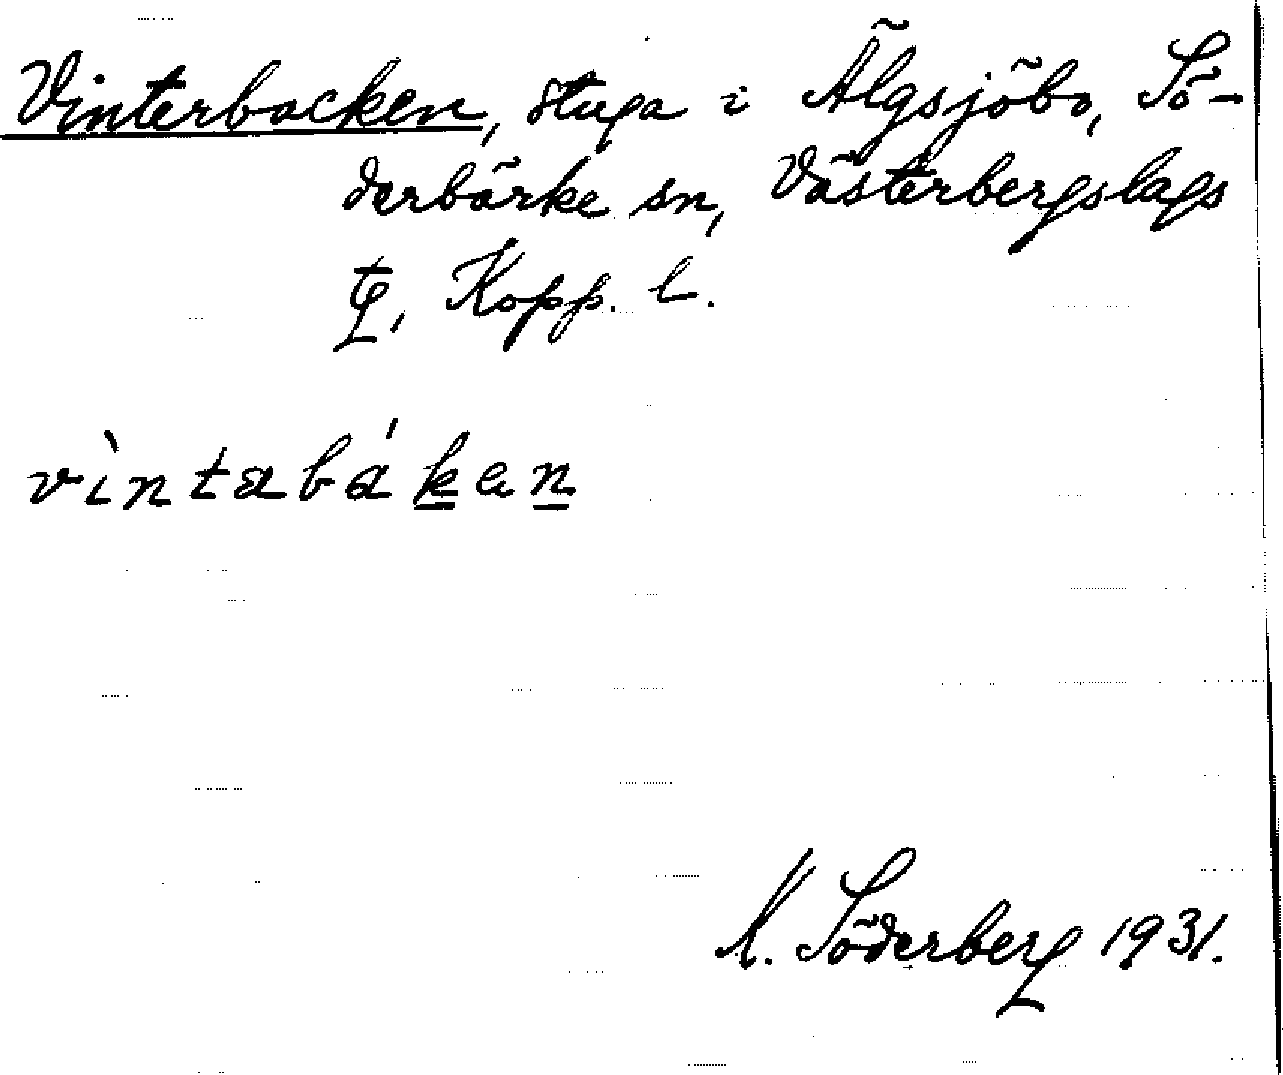 Vinterbacken, stuga i Älgsjöbo, Sö-
derbärke sn, Västerbergslags
tg, Kopp. l.
vìntabáken
Söderberg 1931.